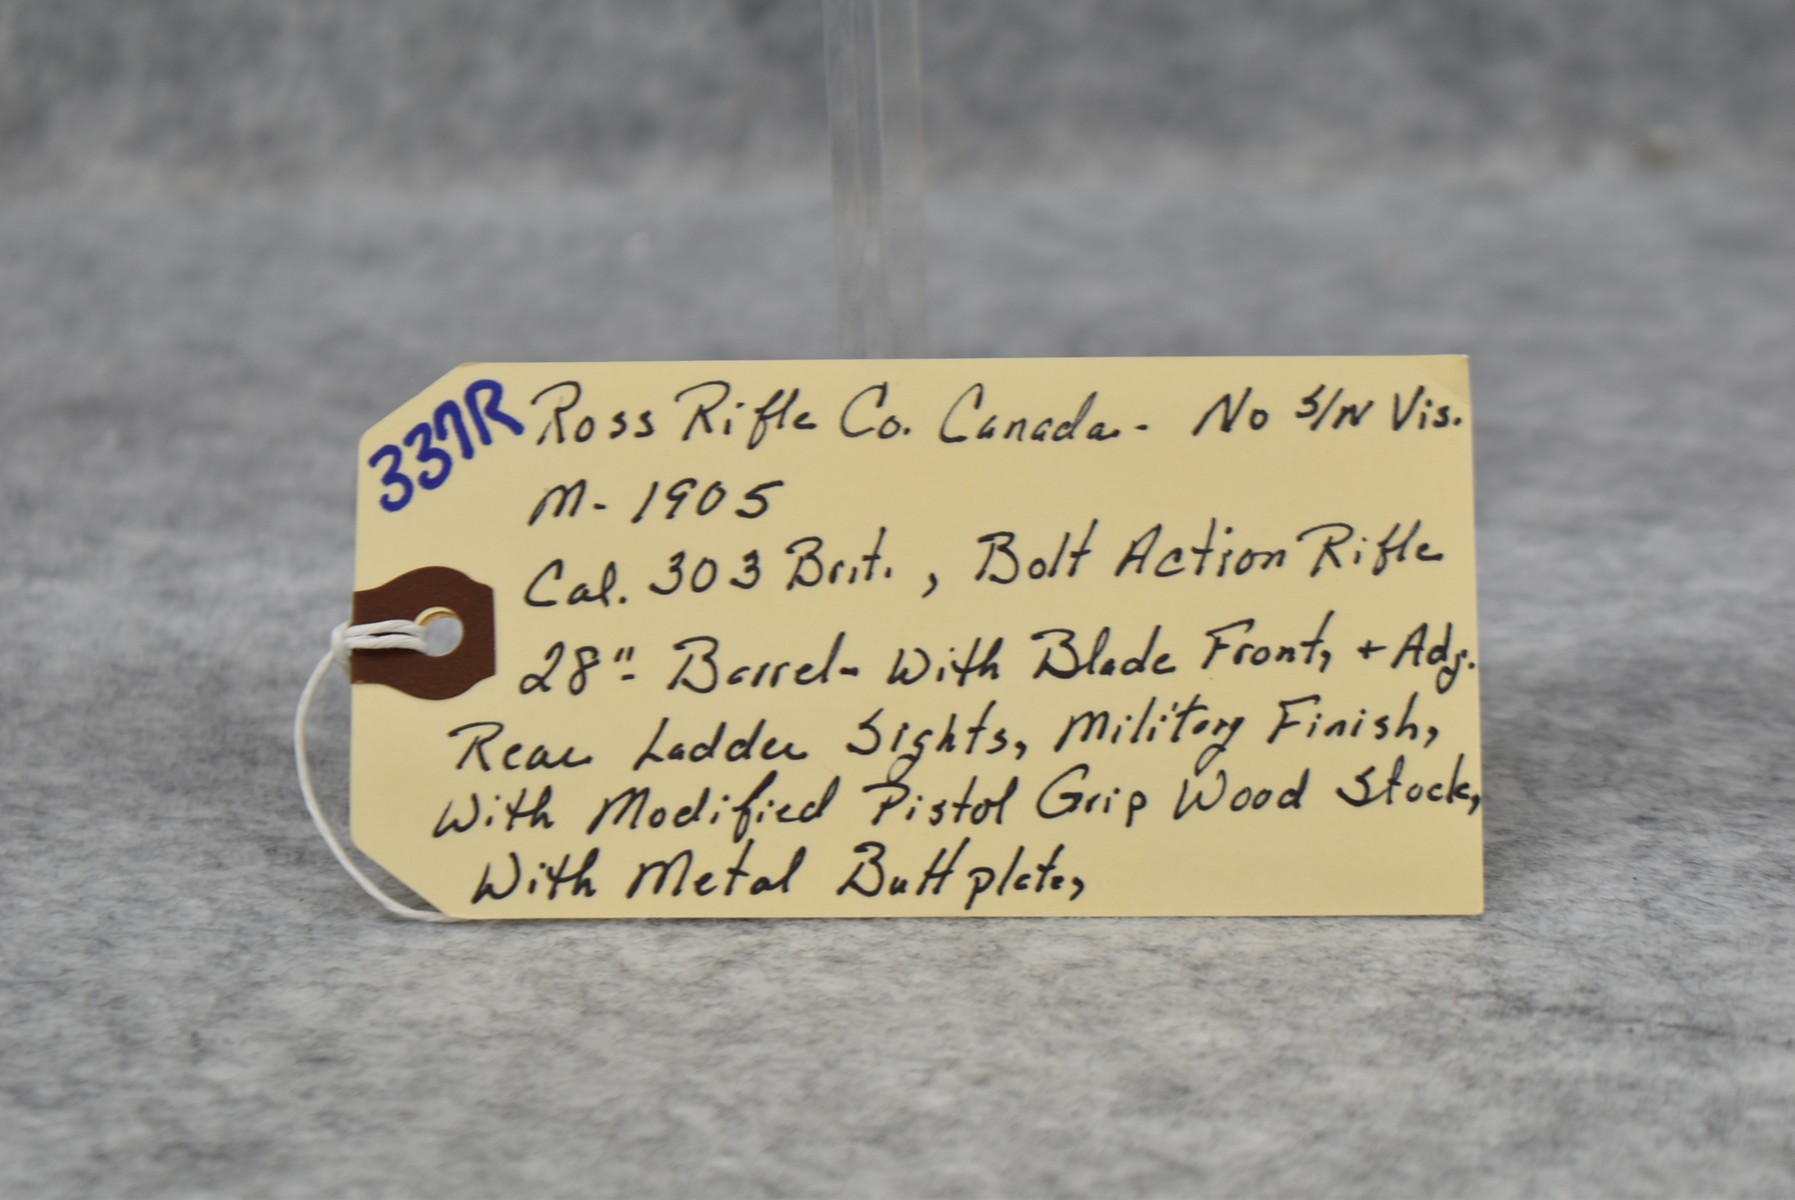 337R
Ross Rifle Co. Canada. - No S/N Vis.
M- 1905
Cal. 303 Brit. , Bolt Action Rifle
28" - Barrel - With Blade Front, + Adj.
Rear Ladder Sights, Military Finish,
With Modified Pistol Grip Wood Stock,
With Metal Buttplate,